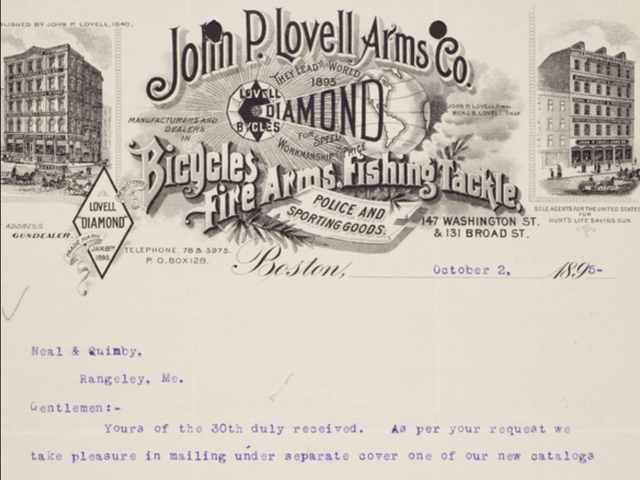 LISHED BY JOHN P. LOVELL, 1840.
John P. Lovell Arms Co.
THEY LEAD THE WORLD
1895
LOVELL
DIAMOND
BICYCLES
FOR SPEED
WORKMANSHIP PRICE
JOHN P. LOVELL, Pres.
BENJ. S. LOVELL, Treas.
MANUFACTURERS AND
DEALERS
IN
Bicycles
Fire Arms, Fishing Tackle,
POLICE AND
SPORTING GOODS.
147 WASHINGTON ST.
& 131 BROAD ST.
SOLE AGENTS FOR THE UNITED STATES
FOR
HUNT'S LIFE SAVING GUN.
LOVELL
"DIAMOND"
TRADE MARK
REGISTERED
1895
ADDRESS
GUNDEALER
TELEPHONE, 76 & 3975.
P. O. BOX 128.
Boston, October 2, 1895-
Neal & Quimby,
Rangeley, Me.
Gentlemen:-
Yours of the 30th duly received. As per your request we
take pleasure in mailing under separate cover one of our new catalogs